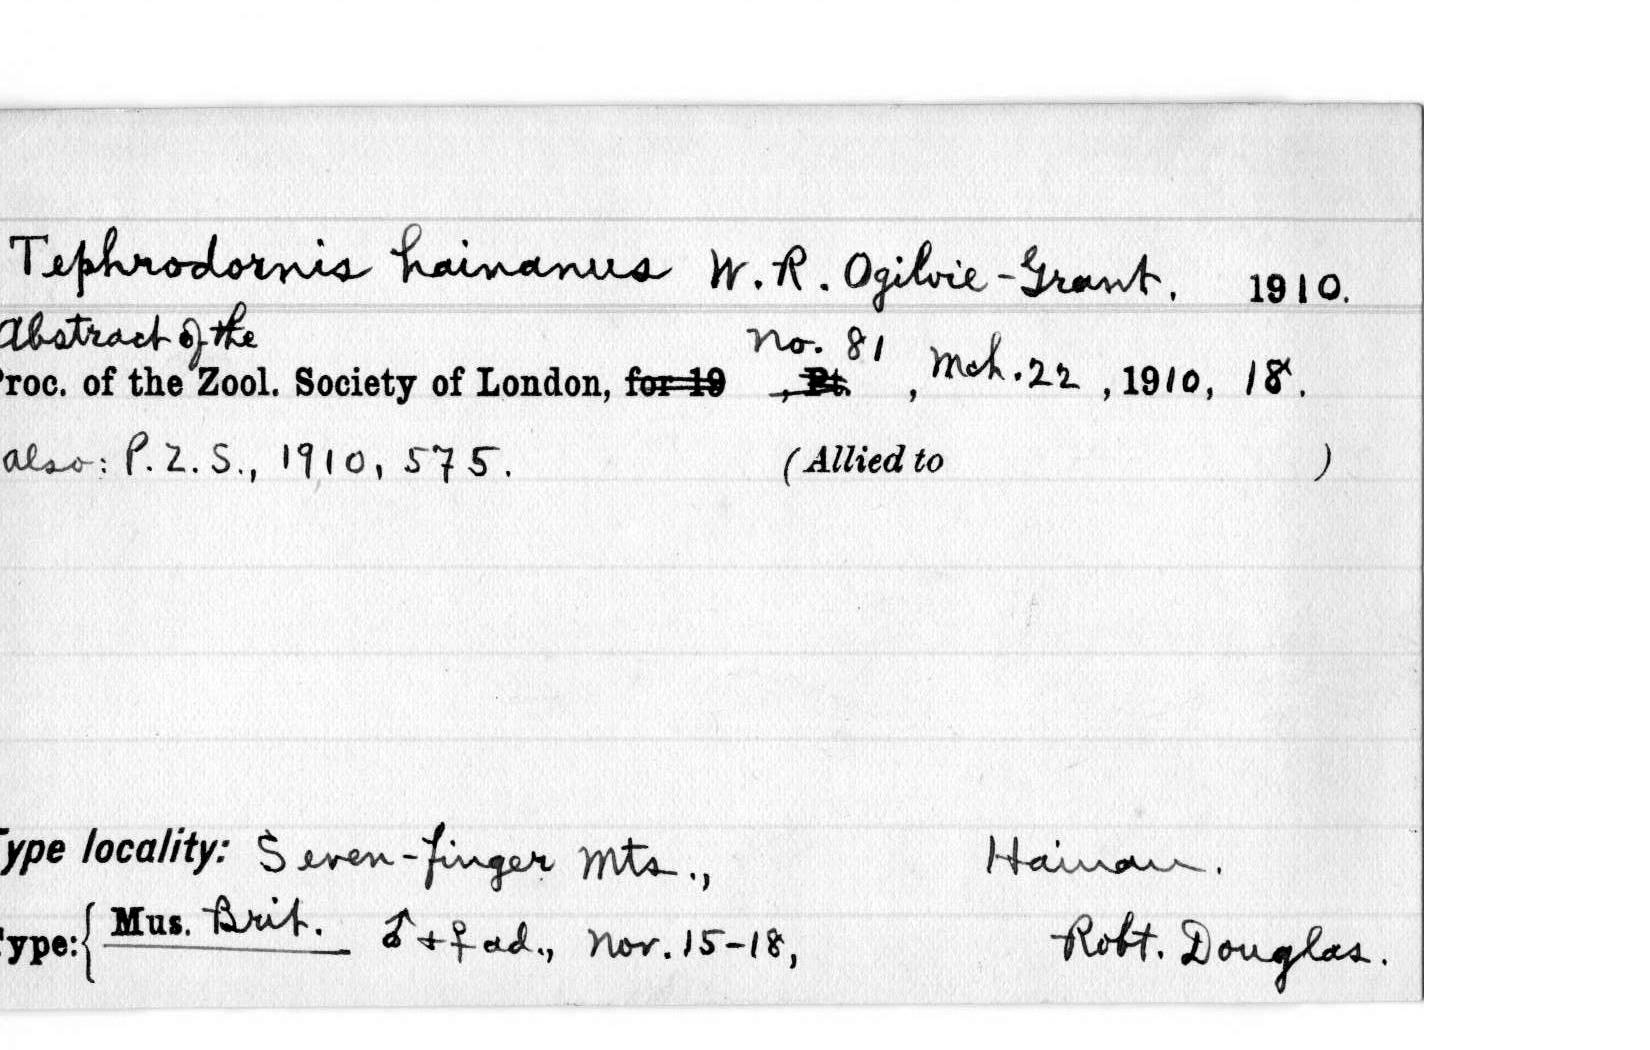 Tephrodornis hainanus W. R. Ogilvie-Grant. 1910.
Abstract of the No. 81
Proc. of the Zool. Society of London, for 19 , Pt. , Mch. 22 , 1910, 18.
also: P. Z. S., 1910, 575. (Allied to )
Type locality: Seven-finger Mts., Hainan.
Type: { Mus. Brit. ♂ + ♀ ad., Nov. 15-18, Robt. Douglas.